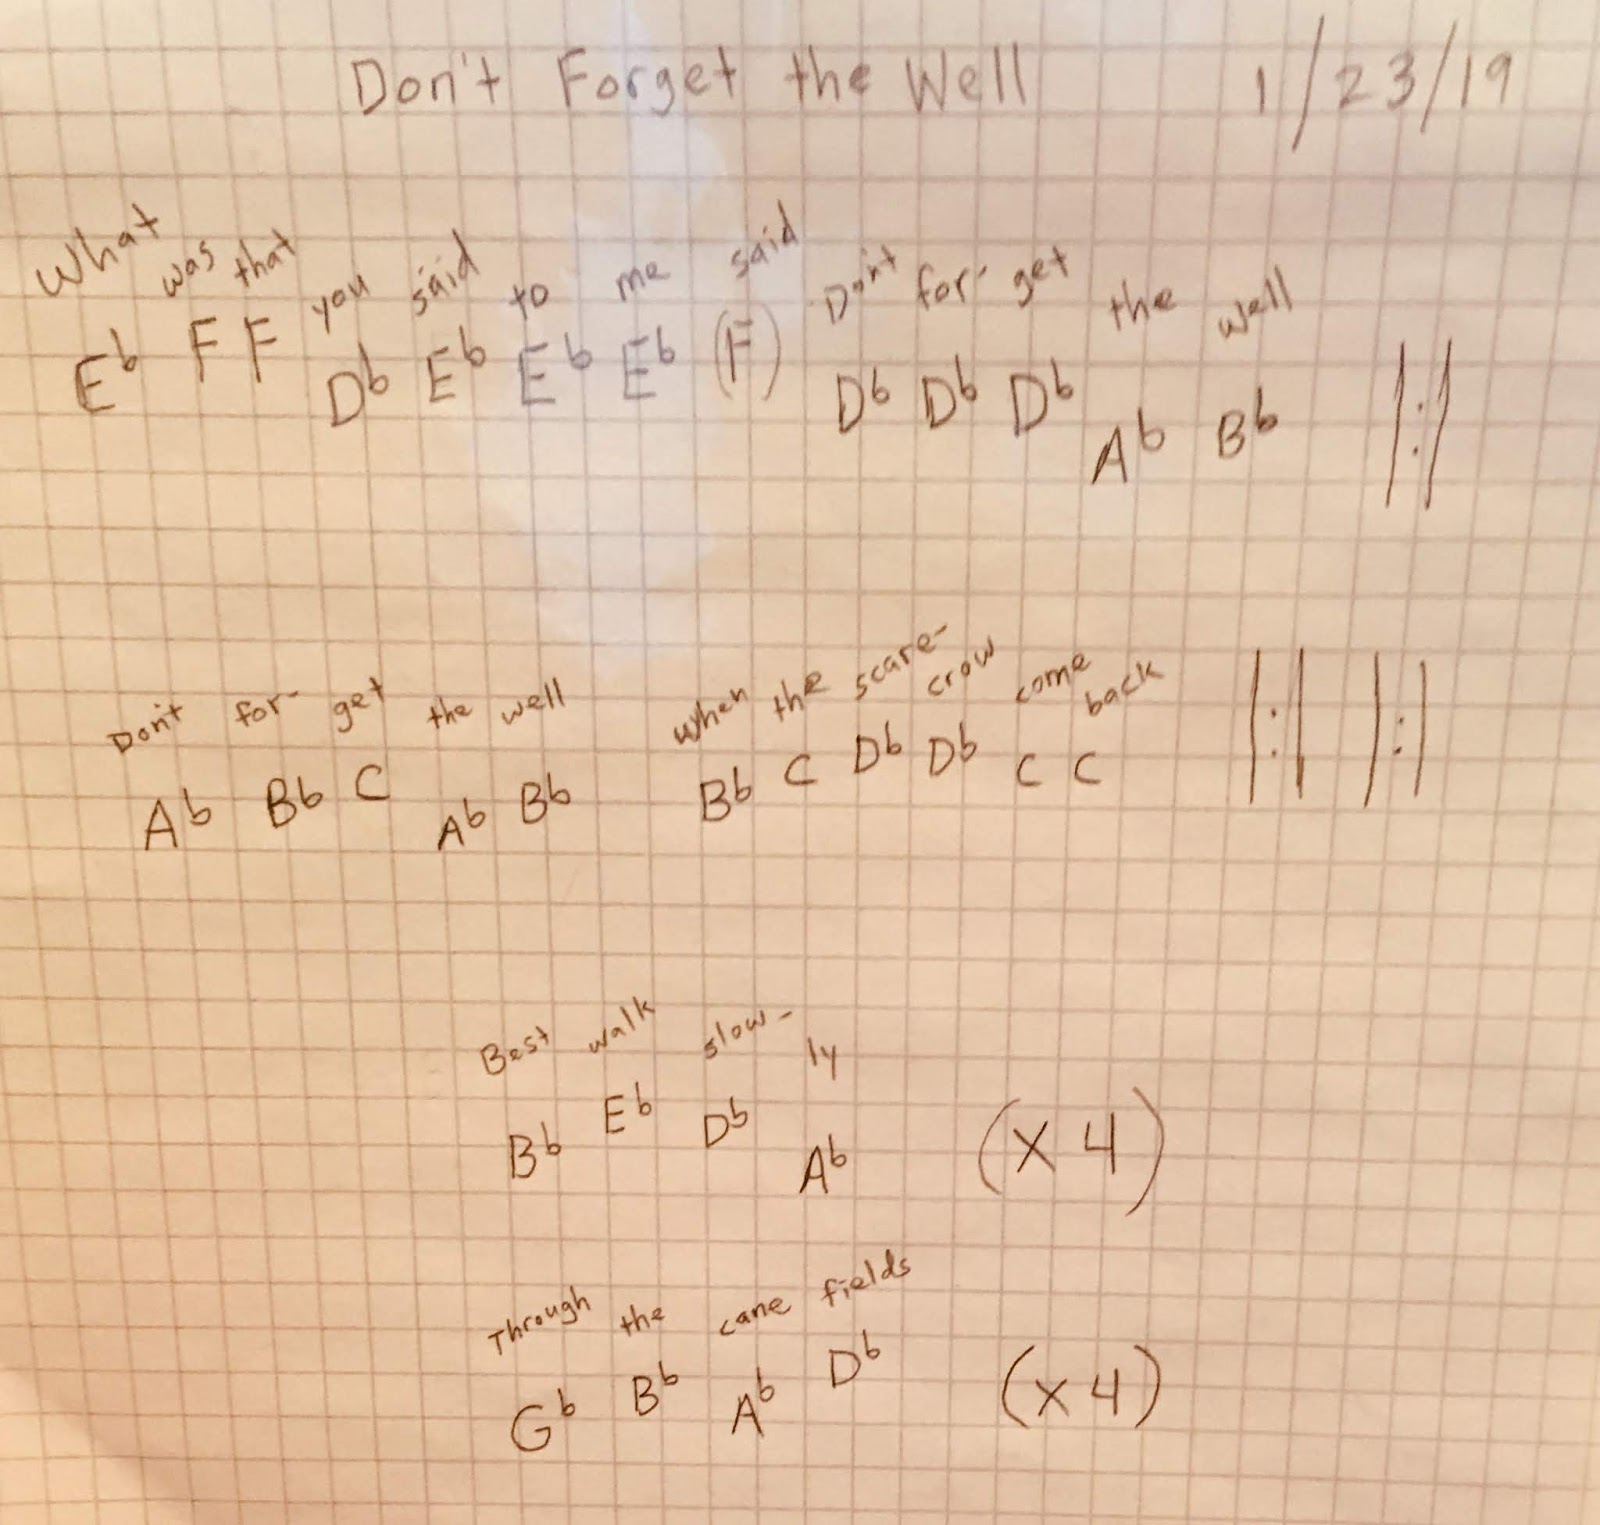 Don't Forget the Well 1/23/19
What was that you said to me said Don't for- get the well
E♭ F F D♭ E♭ E♭ E♭ (F) D♭ D♭ D♭ A♭ B♭ |:|
Don't for- get the well When the scare- crow come back
A♭ B♭ C A♭ B♭ B♭ C D♭ D♭ C C |:| |:|
Best walk slow- ly
B♭ E♭ D♭ A♭ (x 4)
Through the cane fields
G♭ B♭ A♭ D♭ (x 4)